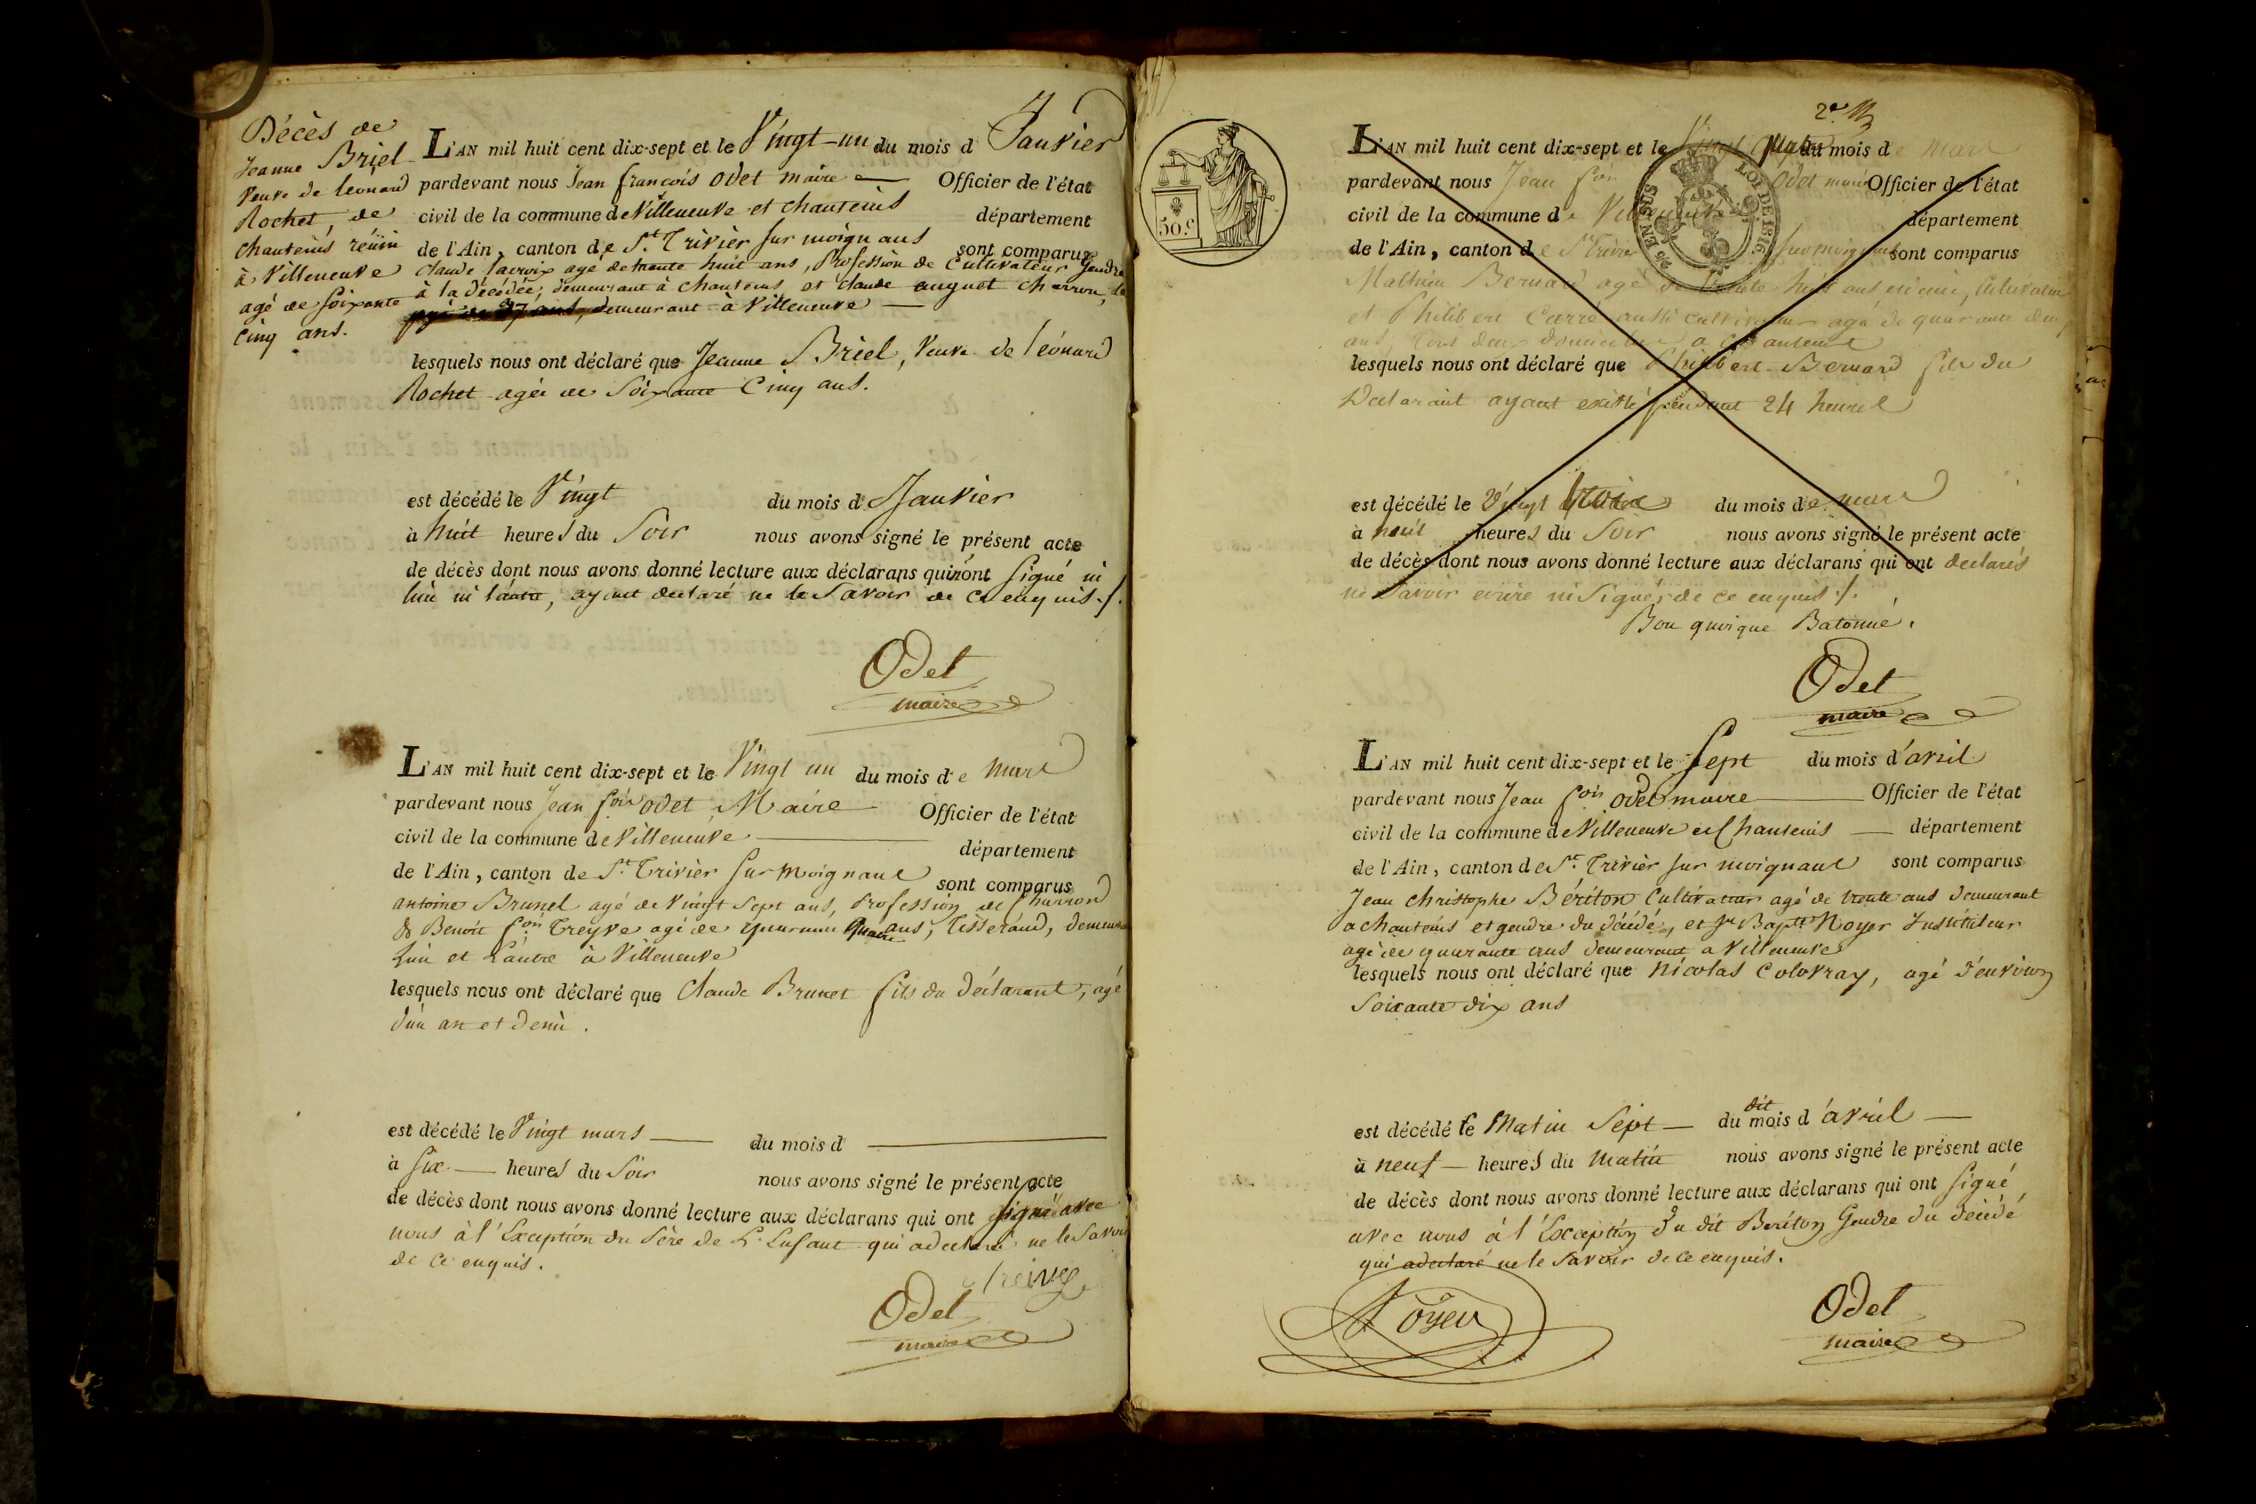 Décès de
Jeanne Briel
veuve de leonard
Rochet, de
chanteins réüni
à Villeneuve
agé de soixante
cinq ans.
L'AN mil huit cent dix-sept et le Vingt-un du mois d Janvier
pardevant nous Jean françois Odet maire Officier de l'état
civil de la commune de Villeneuve et chanteins département
de l'Ain, canton de St. Trivier sur moignans sont comparus
claude lacroix agé de trente huit ans, Profession de Cultivateur gendre
à la décédée, demeurant à chanteins, et claude auguet charron,
demeurant à Villeneuve
lesquels nous ont déclaré que Jeanne Briel, Veuve de leonard
Rochet agée de Soixante Cinq ans.
est décédé le Vingt du mois d Janvier
à huit heures du Soir nous avons signé le présent acte
de décès dont nous avons donné lecture aux déclarans qui n'ont signé ni
l'un ni l'autre, ayant declaré ne le Savoir de ce enquis ./.
Odet
maire
L'AN mil huit cent dix-sept et le Vingt un du mois de mars
pardevant nous Jean fois odet, Maire Officier de l'état
civil de la commune de Villeneuve département
de l'Ain, canton de St. Trivier sur Moignans sont comparus
antoine Brunel agé de vingt sept ans, Profession de Charron
& Benoit fois Treyve agé de quarante quatre ans, Tisserand, demeurant
L'un et L'autre à Villeneuve
lesquels nous ont déclaré que Claude Brunet fils du déclarant, agé
d'un an et demi.
est décédé le Vingt mars du mois d
à Six heures du Soir nous avons signé le présent acte
de décès dont nous avons donné lecture aux déclarans qui ont signé avec
nous à l'Exception du Père de L'Enfant qui a declaré ne le Savoir
de ce enquis.
Treive
Odet
maire
50 c
2e
L'AN mil huit cent dix-sept et le Vingt quatre du mois de mars
pardevant nous Jean fois Odet maire Officier de l'état
civil de la commune de Villeneuve département
de l'Ain, canton de St Trivier sur moignans sont comparus
EN SUS
LOI DE 1816
Mathieu Bernard agé de trente huit ans, cultivateur
et Philibert Carré aussi cultivateur agé de quarante deux
ans, tous deux domiciliés a Chanteins
lesquels nous ont déclaré que Philibert Bernard fils du
Declarant ayant existé pendant 24 heures
est décédé le Vingt trois du mois de mars
à neuf heures du Soir nous avons signé le présent acte
de décès dont nous avons donné lecture aux déclarans qui ont declarés
ne Savoir ecrire ni Signer de ce enquis ./.
Bon quoique Batonné.
Odet
maire
L'AN mil huit cent dix-sept et le Sept du mois d'avril
pardevant nous Jean fois odet maire Officier de l'état
civil de la commune de Villeneuve et Chanteins département
de l'Ain, canton de St. Trivier sur moignans sont comparus
Jean christophe Bériton Cultivateur agé de trente ans demeurant
a chanteins et gendre du décédé, et Jn Bapte Noyer Instituteur
agé de quarante ans demeurant a Villeneuve
lesquels nous ont déclaré que Nicolas Colovray, agé d'environ
Soixante dix ans
est décédé le Matin Sept dit du mois d'avril
à neuf heures du Matin nous avons signé le présent acte
de décès dont nous avons donné lecture aux déclarans qui ont signé
avec nous à l'Exception du dit Beriton Gendre du décédé
qui a declaré ne le Savoir de ce enquis.
Noyer
Odet
maire